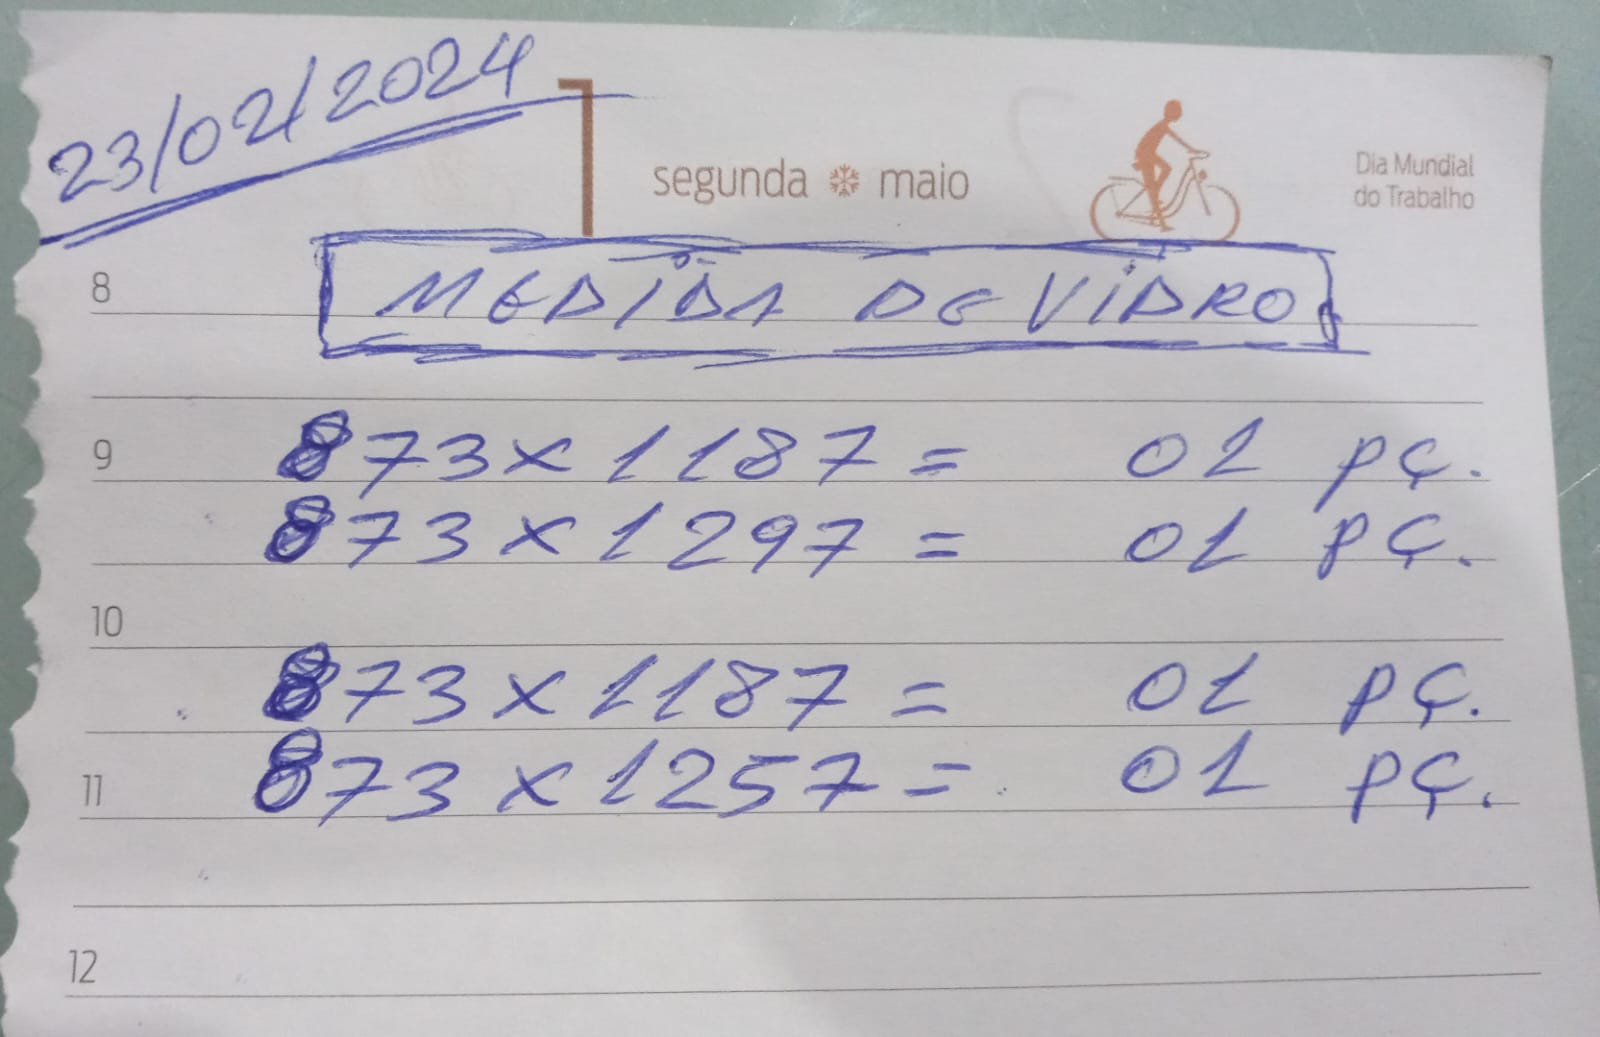 23/02/2024
1 segunda maio
Dia Mundial
do Trabalho
8
MEDIDA DE VIDRO
9
873 x 1187 = 01 pç.
873 x 1297 = 01 pç.
10
873 x 1187 = 01 pç.
11
873 x 1257 = 01 pç.
12